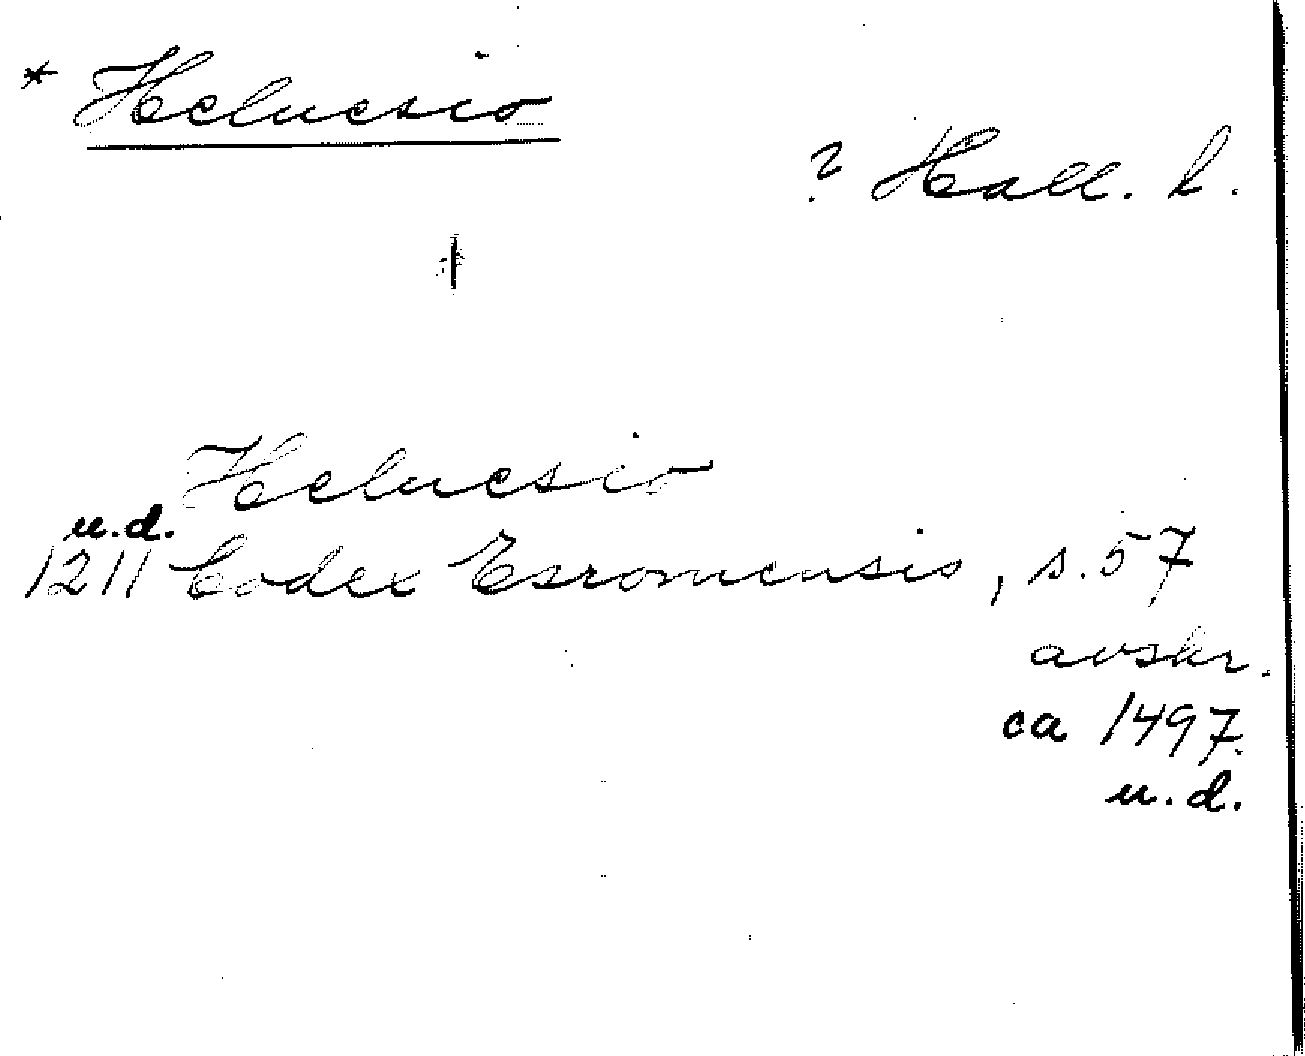 * Helucsio
? Hall. l.
Helucsio
u.d.
1211 Codex Esromensis, s. 57
avskr.
ca 1497.
u.d.